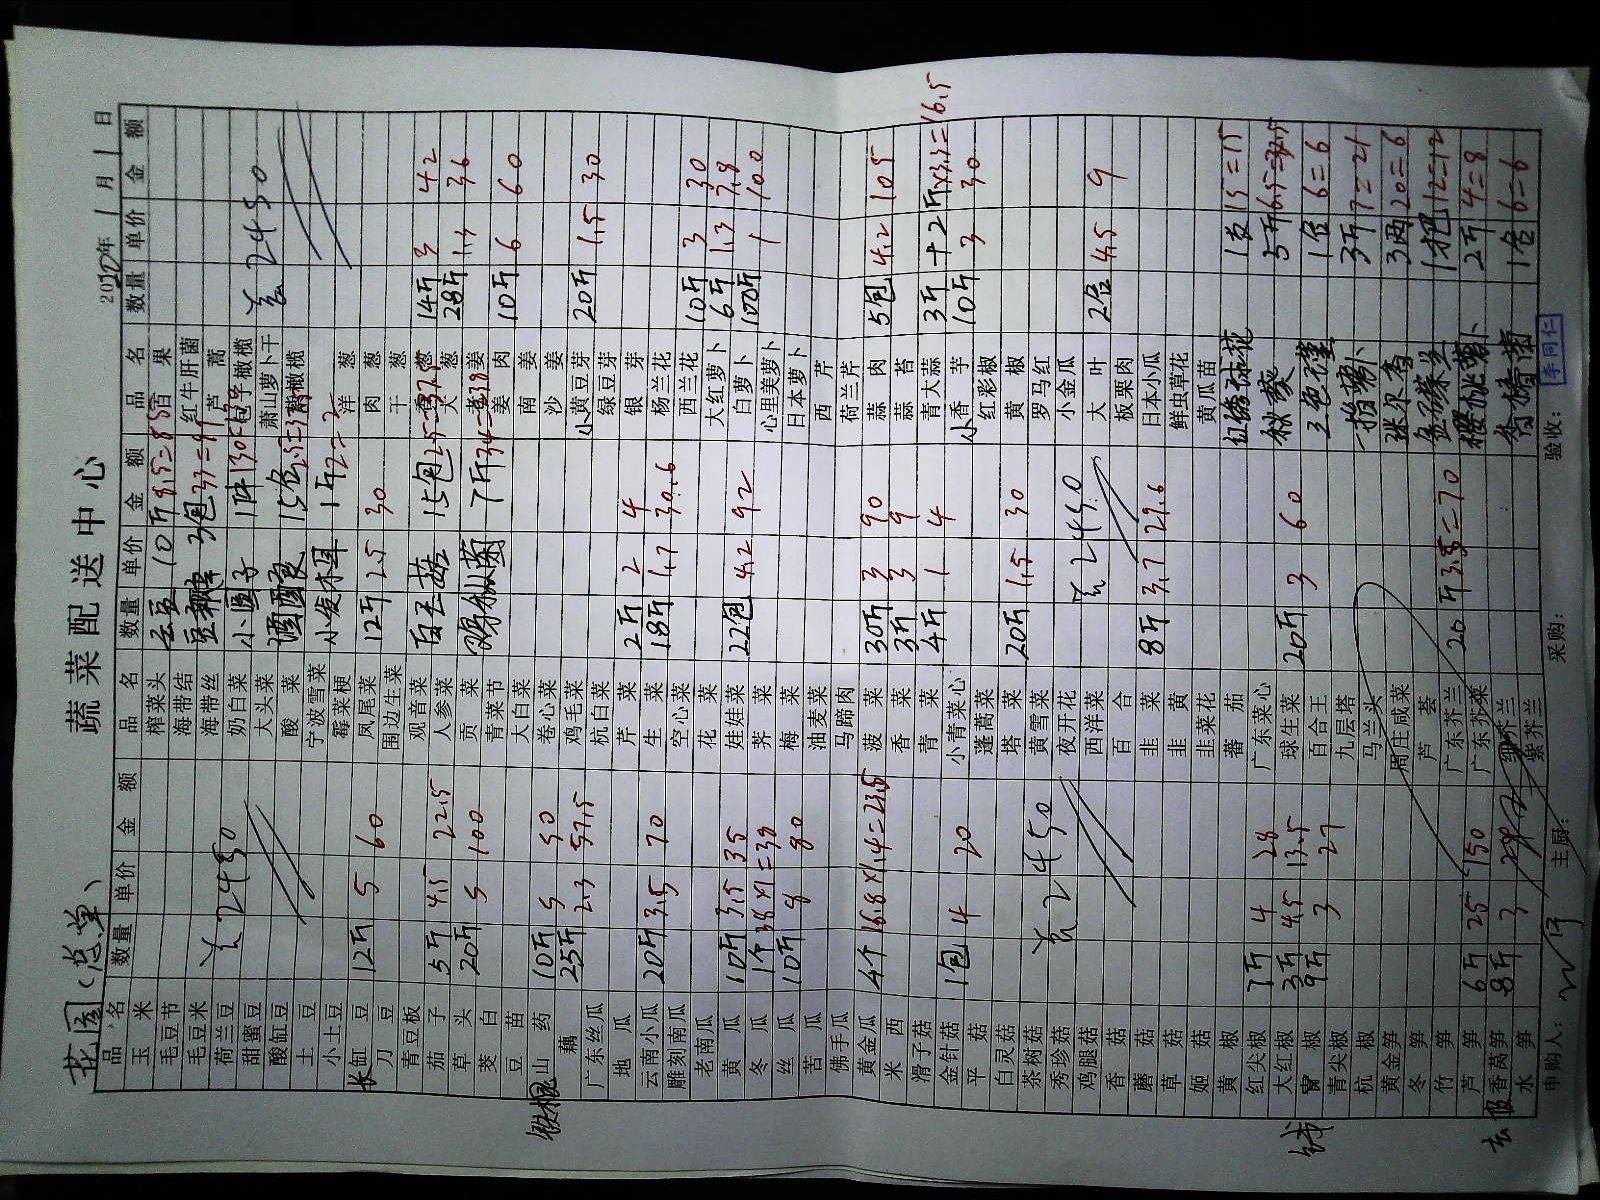 花园(总单)
蔬菜配送中心
2020年1月1日
品名 数量 单价 金额 品名 数量 单价 金额 品名 数量 单价 金额
玉米 榨菜头 云豆 10斤 8.5=85 百果
毛豆节 海带结 红牛肝菌
毛豆米 海带丝 3包 33=99 芦蒿
荷兰豆 共2450 奶白菜 小圆子 1件130 橄榄
甜蜜豆 大头菜 萧山萝卜干 共2450
酸缸豆 酸菜 酒酿 15盒 橄榄
土豆 宁波雪菜
小土豆 霉菜梗 小发木耳 1斤22=22 洋葱
长缸豆 12斤 5 60 凤尾菜 12斤 2.5 30 肉葱
刀豆 围边生菜 干葱
青豆板 观音菜 白玉菇 15包 2.5=37.5 14斤 3 42
茄子 5斤 4.5 22.5 人参菜 大葱 28斤 1.3 36
草头 20斤 5 100 贡菜 7斤 老姜
茭白 青菜节 肉姜 10斤 6 60
豆苗 大白菜 南姜
铁棍山药 10斤 5 50 卷心菜 沙姜
藕 25斤 2.3 57.5 鸡毛菜 小黄豆芽 20斤 1.5 30
广东丝瓜 杭白菜 绿豆芽
地瓜 芹菜 2斤 2 4 银芽
云南小瓜 20斤 3.5 70 生菜 18斤 1.7 30.6 杨兰花
雕刻南瓜 空心菜 西兰花 10斤 3 30
老南瓜 花菜 大红萝卜 6斤 1.3 7.8
黄瓜 10斤 3.5 35 娃娃菜 22包 4.2 92 白萝卜 100斤 1 100
冬瓜 1个 38×1=38 荠菜 心里美萝卜
丝瓜 10斤 8 80 梅菜 日本萝卜
苦瓜 油麦菜 西芹
佛手瓜 马蹄肉 荷兰芹
黄金瓜 4个 16.8×1.4=23.5 菠菜 30斤 3 90 蒜肉 5包 4.2 10.5
米西 香菜 3斤 3 9 蒜苔
滑子菇 青菜 4斤 1 4 青大蒜 3斤+2斤×3.3=16.5
金针菇 1包 4 20 小青菜心 小香芋 10斤 3 30
平菇 蓬蒿菜 红彩椒
白灵菇 塔菜 20斤 1.5 30 黄椒
茶树菇 共2450 黄雪菜 罗马红
秀珍菇 夜开花 共2450 小金瓜
鸡腿菇 西洋菜 大叶 2包 4.5 9
香菇 百合 板栗肉
蘑菇 韭菜 8斤 3.7 29.6 日本小瓜
草菇 韭黄 鲜虫草花
姬菇 韭菜花 黄瓜苗
黄椒 蕃茄 绣球花 15=15
红尖椒 7斤 4 28 广东菜心 秋葵 5斤 6.5
大红椒 3斤 4.5 13.5 球生菜 20斤 3 60 三色堇 1盒 6=6
青椒 9斤 3 27 百合王 一指萝卜 3斤 7=21
青尖椒 九层塔 迷尔香 3两 20=6
杭椒 马兰头 1把 12=12
黄金笋 周庄咸菜 樱桃萝卜 2斤 4=8
冬笋 芦荟 1盒 6=6
竹笋 广东芥兰 20斤 3.5=70
芦笋 6斤 25 150 广东芥菜
香莴笋 8斤 3 绿芥兰
水笋 紫芥兰
申购人: 主厨: 采购: 验收: 李同仁